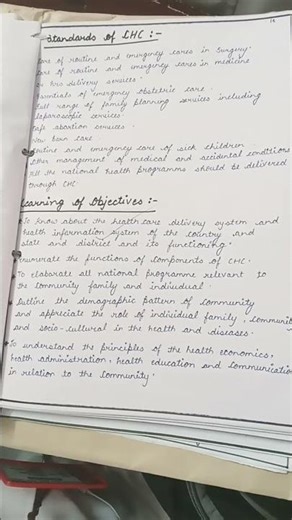 Standards of CHC :-
Care of routine and emergency cares in Surgery.
Care of routine and emergency cares in medicine
hrs delivery services.
Essentials of emergency obstetric care.
Full range of family planning services including
laparoscopic services.
Safe abortion services.
New born care
Routine and emergency care of sick children
Other management of medical and accidental conditions
All the national health programms should be delivered
through CHC
Learning of Objectives :-
To know about the health care delivery system and
health information system of the country and
state and district and its functioning.
enumerate the functions of components of CHC.
To elaborate all national programme relevant to
the community family and individual.
Outline the demographic pattern of community
and appreciate the role of individual family, community
and socio-cultural in the health and diseases.
To understand the principles of the health economics,
health administration, health education and communication
in relation to the community.